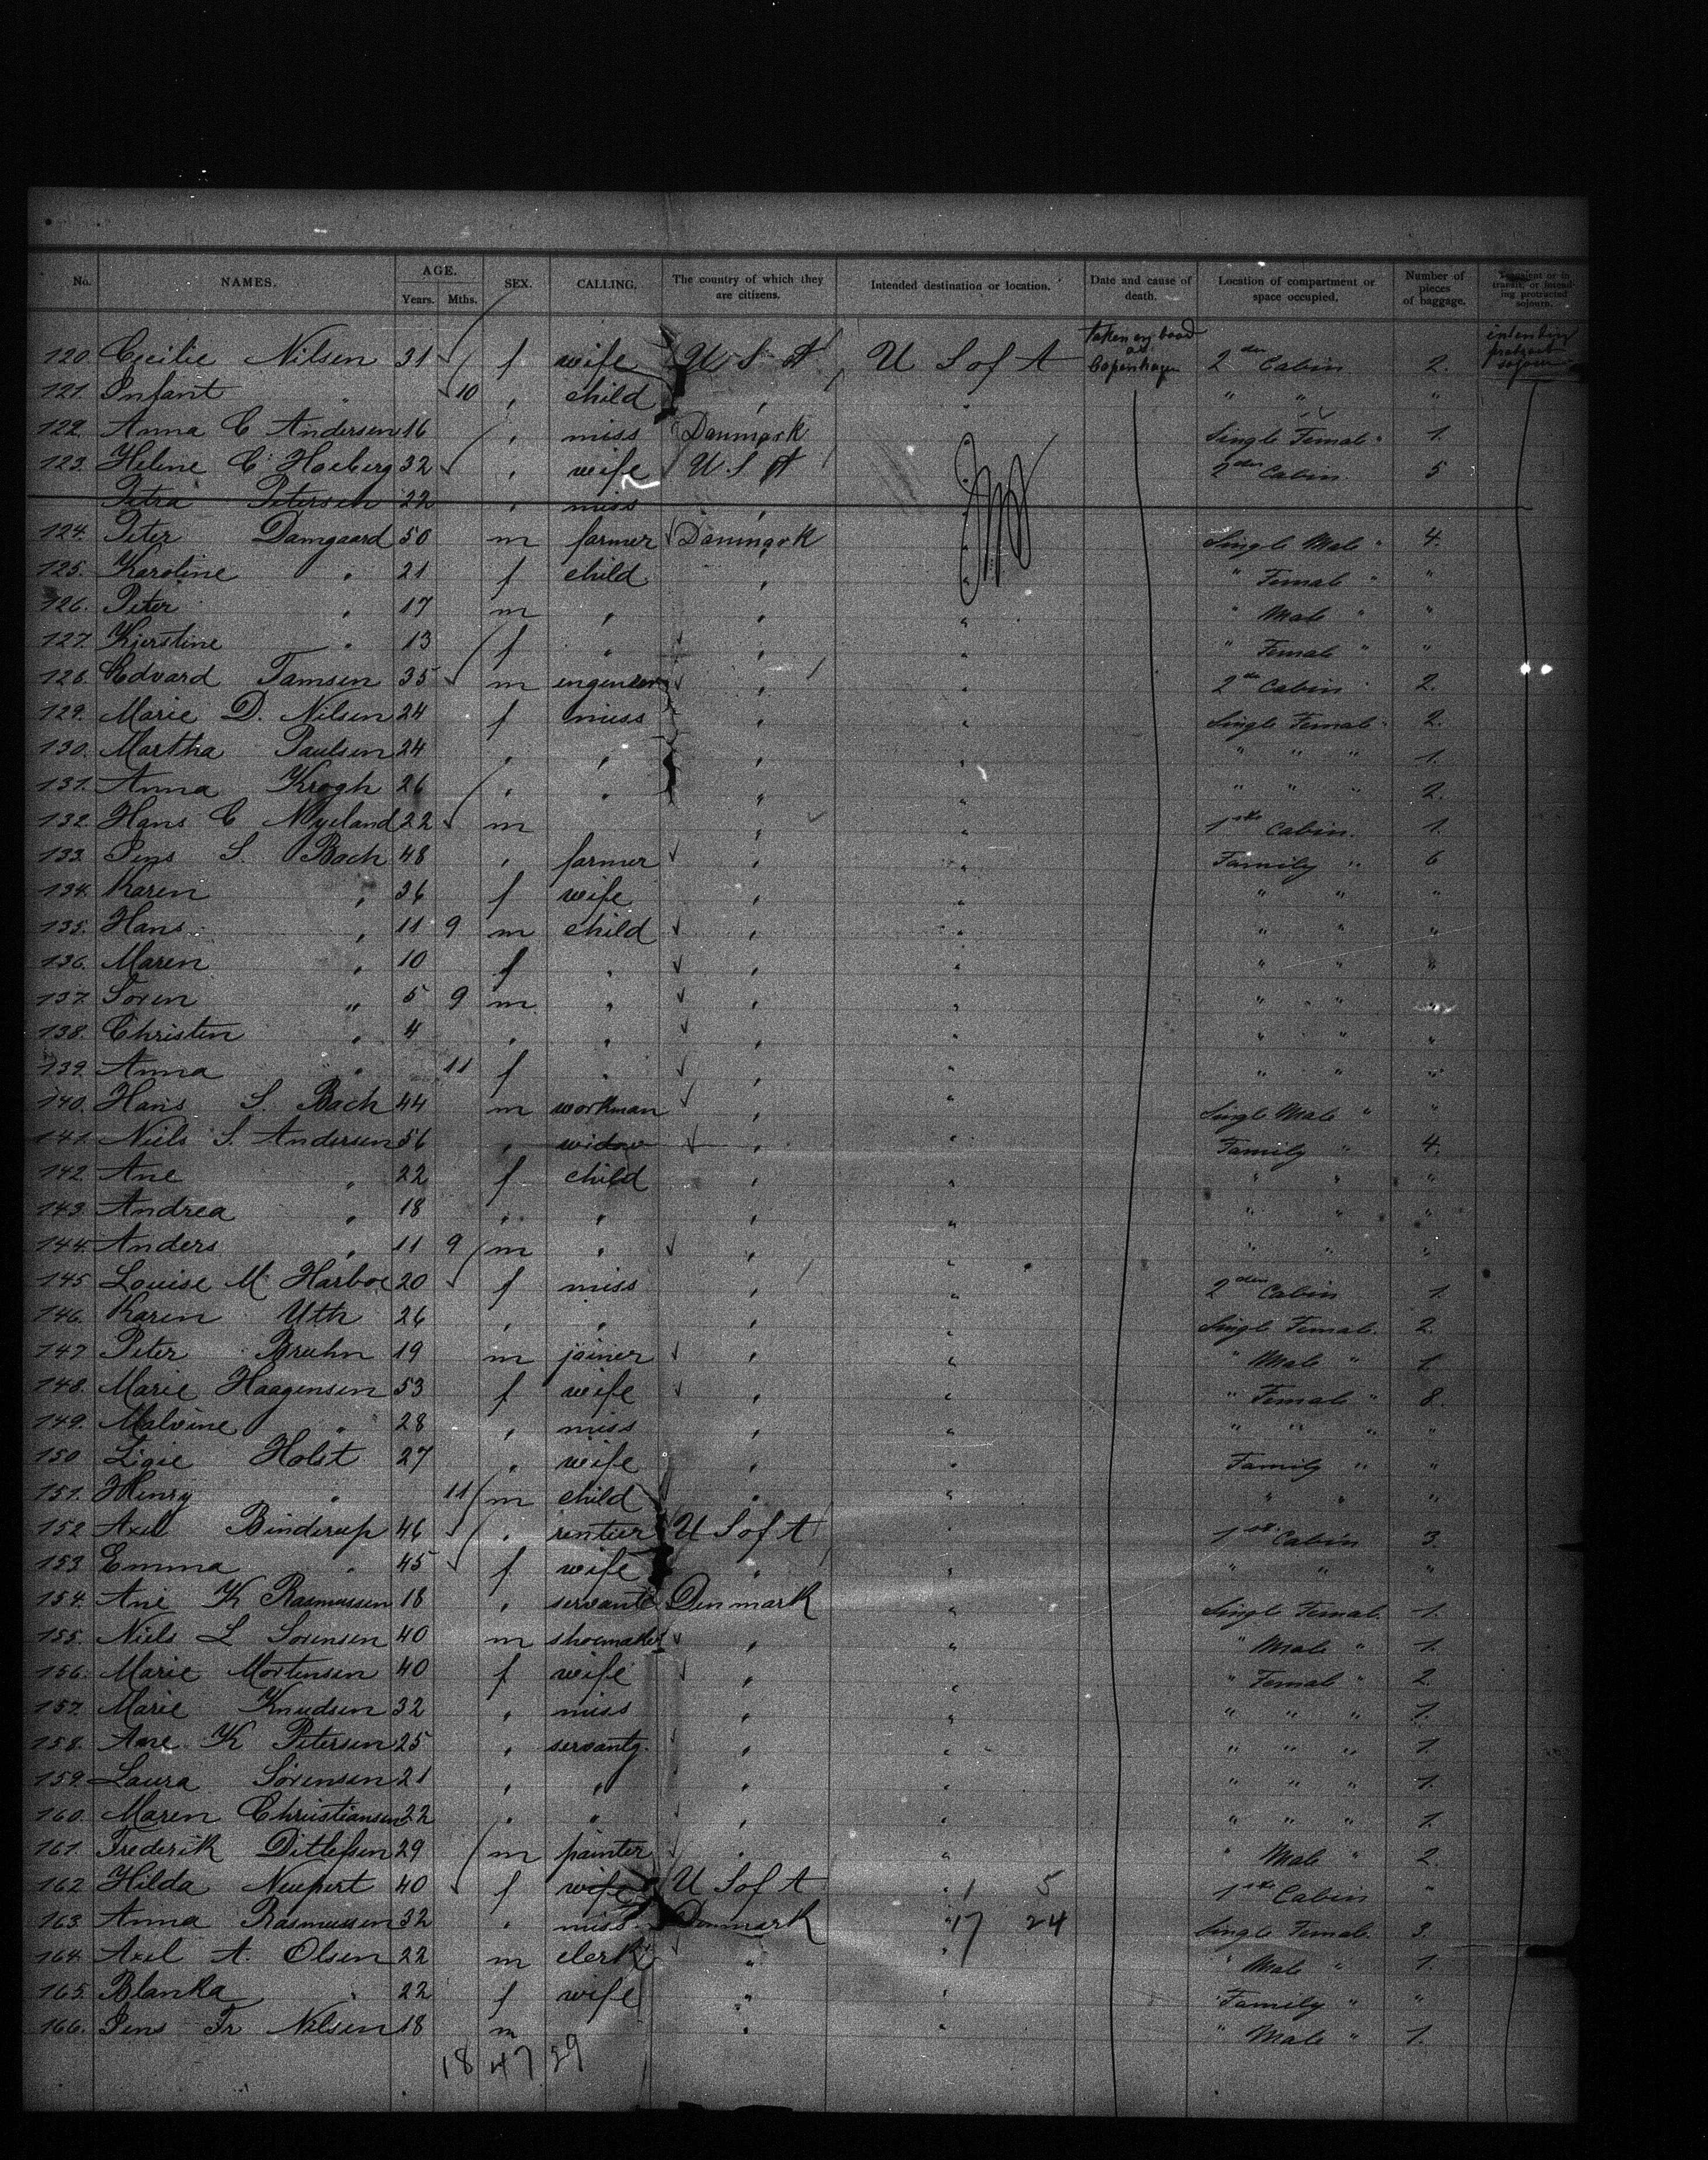 No. NAMES. AGE. Years. Mths. SEX. CALLING. The country of which they are citizens. Intended destination or location. Date and cause of death. Location of compartment or space occupied. Number of pieces of baggage. Transient or in transit, or intending protracted sojourn.
120. Cecilie Nilsen 31 f wife U S A U S of A taken on board at Copenhagen 2den Cabin 2. intending protract sojourn
121. Infant " 10 " child " " " " "
122. Anna C Andersen 16 " miss Danmark " Single Female " 1.
123. Heline C Hoeberg 32 " wife U. S A " 2den Cabin 5
Petra Petersen 22 " miss "
124. Peter Damgaard 50 m farmer Danmark " Single Male " 4.
125. Karoline " 21 f child " " " Female " "
126. Peter " 17 m " " " " Male " "
127. Kjerstine " 13 f " " " " Female " "
128. Edvard Tamsen 35 m engeneer " " 2den Cabin 2.
129. Marie D. Nilsen 24 f miss " " Single Female " 2.
130. Martha Paulsen 24 " " " " " " " 1.
131. Anna Krogh 26 " " " " " " " 2.
132. Hans C Nyeland 22 m " " 1ste Cabin. 1.
133. Jens S. Bach 48 " farmer " " Family " 6
134. Karen " 36 f wife " " " " "
135. Hans " 11 9 m child " " " " "
136. Maren " 10 f " " " " " "
137. Soren " 5 9 m " " " " "
138. Christen " 4 " " " " " " "
139. Anna " 11 f " " " " " "
140. Hans S. Bach 44 m workman " " Single Male " "
141. Niels S. Andersen 56 " widow " " Family " 4.
142. Ane " 22 f child " " " " "
143. Andrea " 18 " " " " " " "
144. Anders " 11 9 m " " " " " "
145. Louise M Harboe 20 f miss " " 2den Cabin 1.
146. Karen Uth 26 " " " " Single Female. 2.
147. Peter Bruhn 19 m joiner " " " Male "
148. Marie Haagensen 53 f wife " " " Female " 8.
149. Malvine " 28 " miss " " " " " "
150. Ligie Holst 27 " wife " " Family " "
151. Henry " 11 m child " " " " "
152. Axel Binderup 46 " rentier U S of A " 1ste Cabin 3.
153. Emma " 45 f wife " " " " "
154. Ane K Rasmussen 18 " servante Denmark " Single Female. 1.
155. Niels L Sorensen 40 m shoemaker " " " Male " 1.
156. Marie Mortensen 40 f wife " " " Female " 2.
157. Marie Knudsen 32 " miss " " " " " 1.
158. Ane K Petersen 25 " servantg. " " " " " 1.
159. Laura Sörensen 21 " " " " " " " 1.
160. Maren Christiansen 22 " " " " " " " 1.
161. Frederik Ditlefsen 29 m painter " " " Male " 2.
162. Hilda Neupert 40 f wife U S of A " 1 5 1ste Cabin "
163. Anna Rasmussen 32 " miss Denmark " 17 24 Single Female. 3.
164. Axel A. Olsen 22 m clerk " " " Male " 1.
165. Blanka " 22 f wife " " Family " "
166. Jens Fr Nilsen 18 m " " " Male " 1.
18 47 29